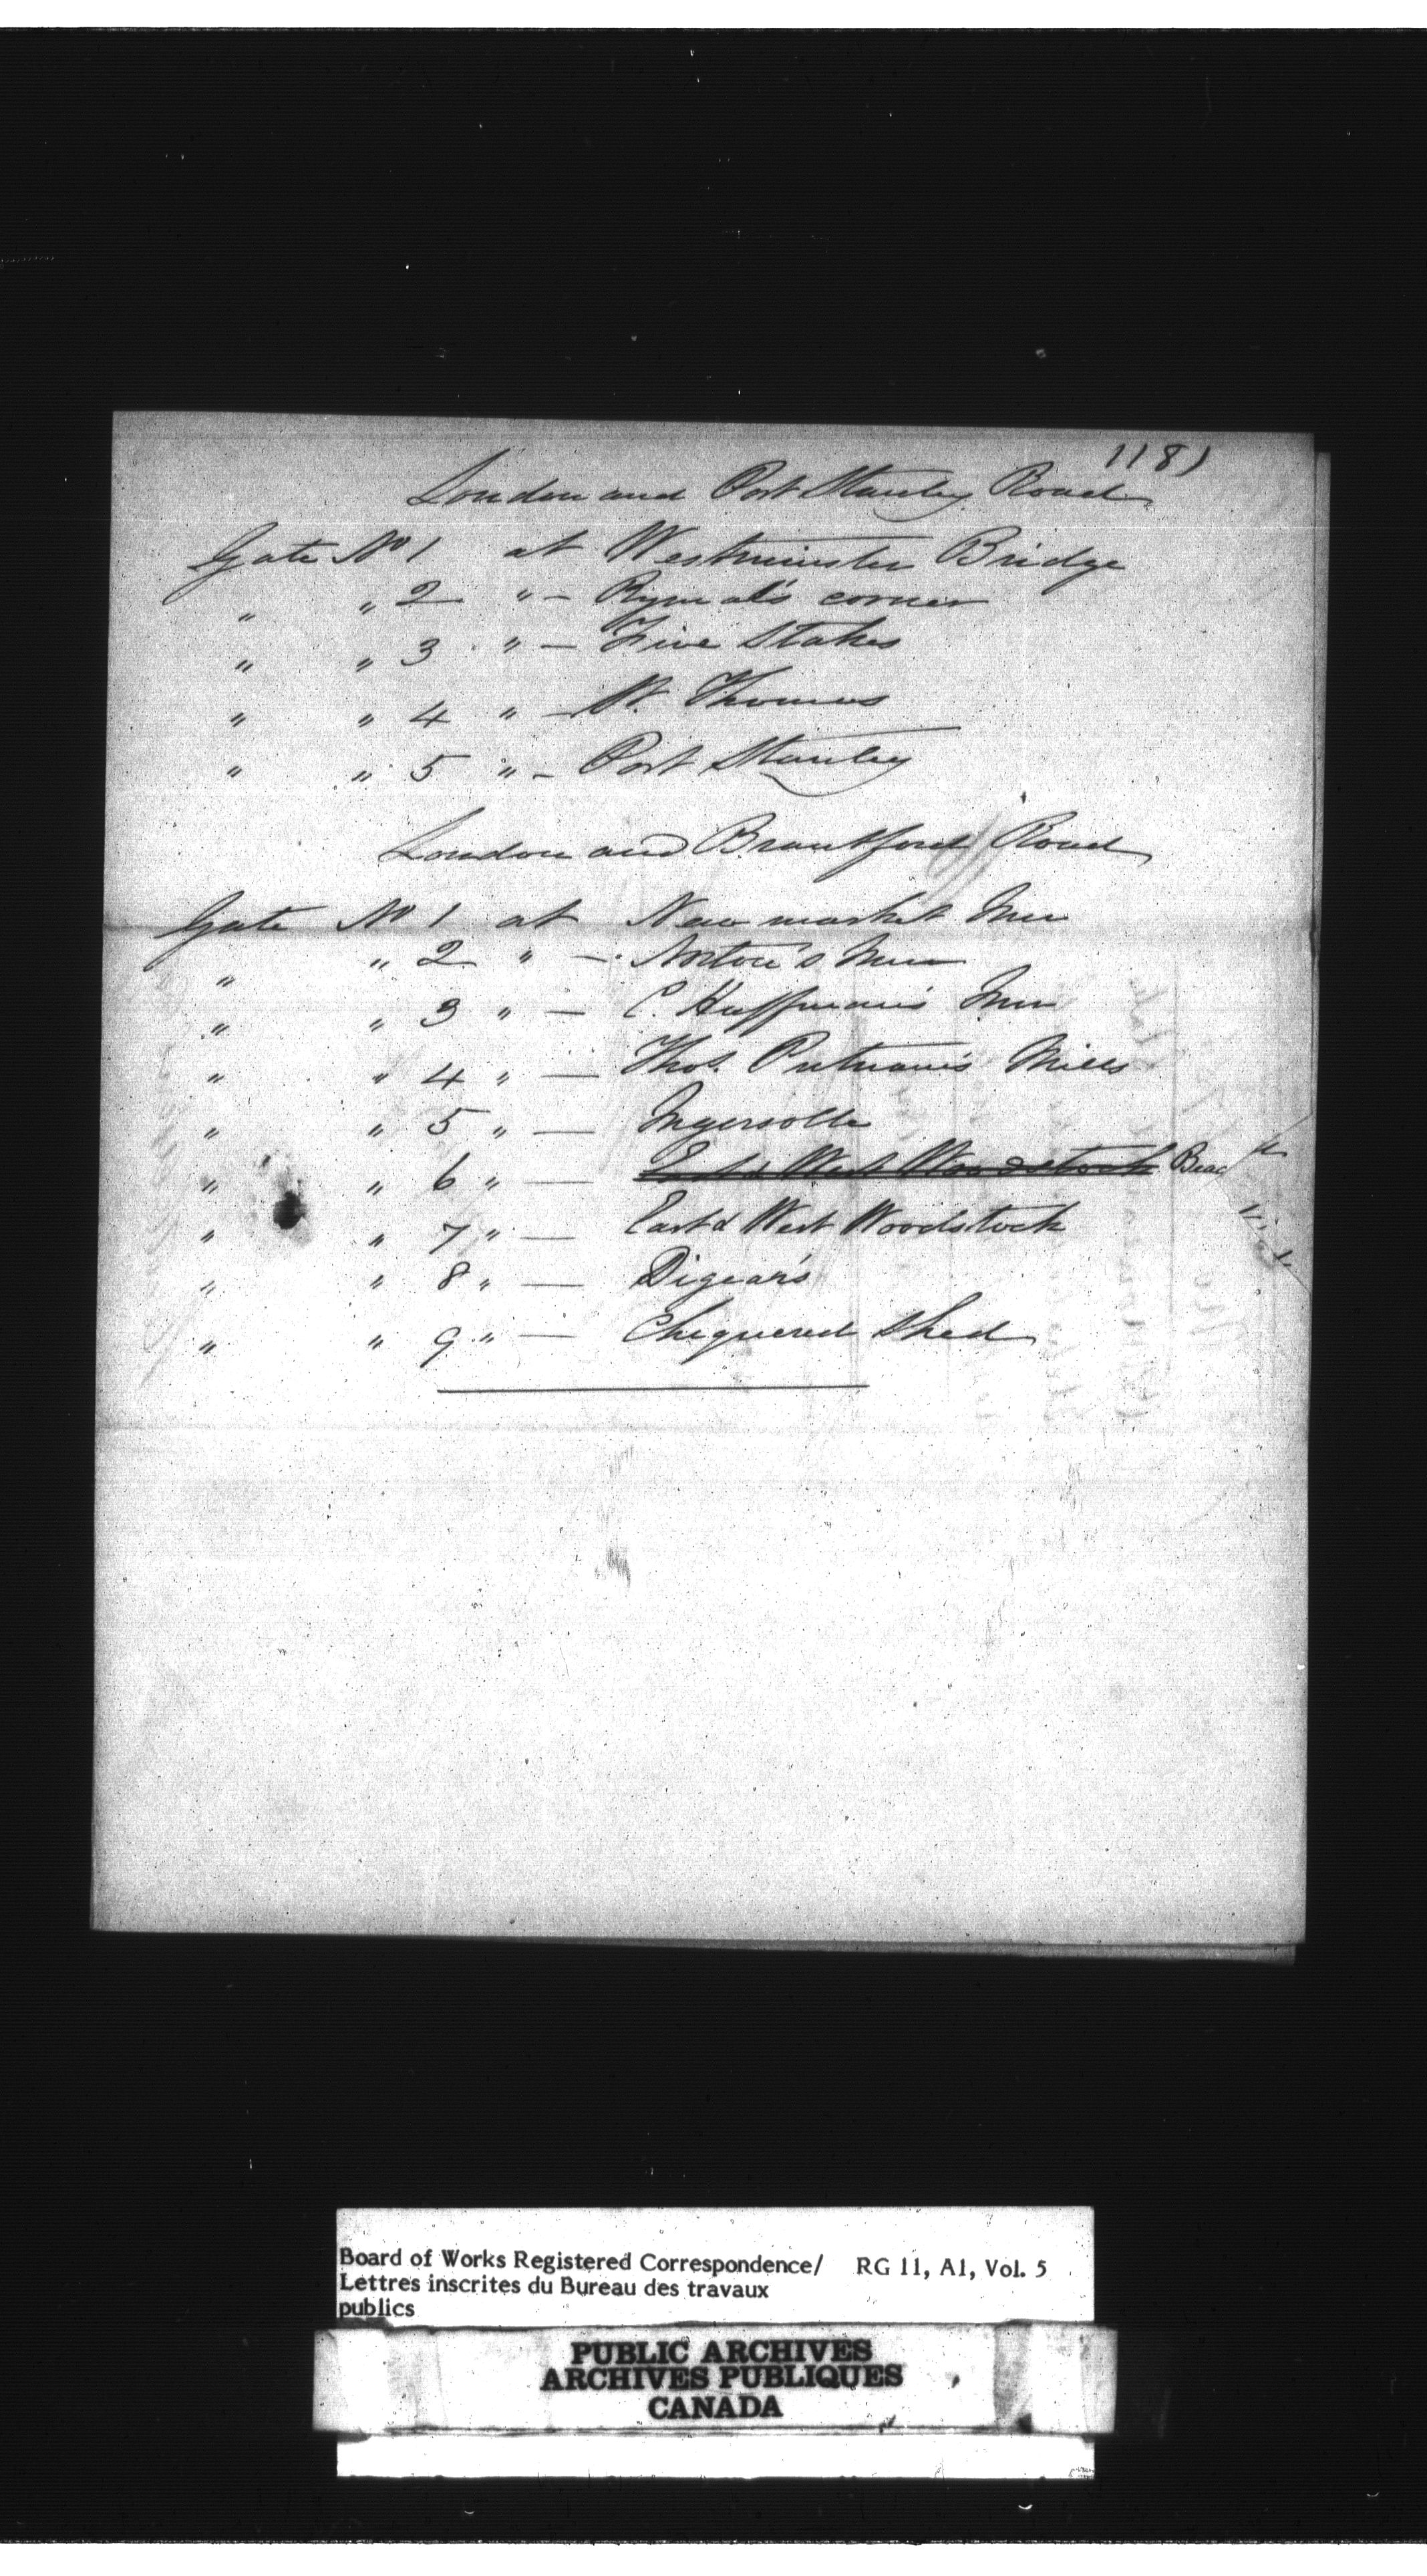 1181
London and Port Stanley Road
Gate No 1 at Westminster Bridge
" " 2 " - Rymal's corner
" " 3 " - Five Stakes
" " 4 " - St. Thomas
" " 5 " - Port Stanley
London and Brantford Road
Gate No 1 at New market Inn
" " 2 " - Norton's Inn
" " 3 " - C. Huffman's Inn
" " 4 " - Thos. Putnam's Mills
" " 5 " - Ingersolle
" " 6 " - East & West Woodstock
" " 7 " - East & West Woodstock
" " 8 " - Digear's
" " 9 " - Chequered Shed
Board of Works Registered Correspondence/ RG 11, A1, Vol. 5
Lettres inscrites du Bureau des travaux
publics
PUBLIC ARCHIVES
ARCHIVES PUBLIQUES
CANADA